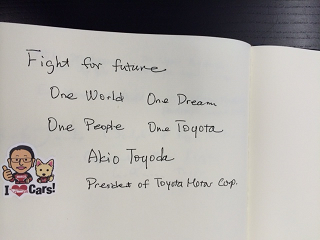 Fight for future
One World One Dream
One People One Toyota
Akio Toyoda
President of Toyota Motor Corp.
I Cars!